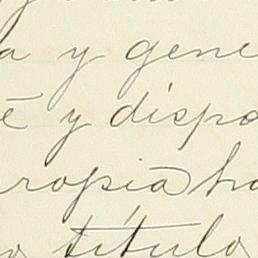 a y gene
é y dispo
ropia ha
o título